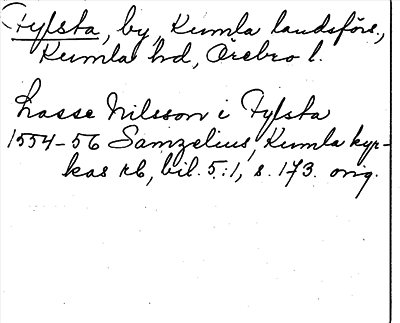 Fylsta, by, Kumla landsförs.,
Kumla hd, Örebro l.
Lasse Nilsson i Fylsta
1554-56 Samzelius, Kumla kyr-
kas rb, bil. 5:1, s. 173. orig.